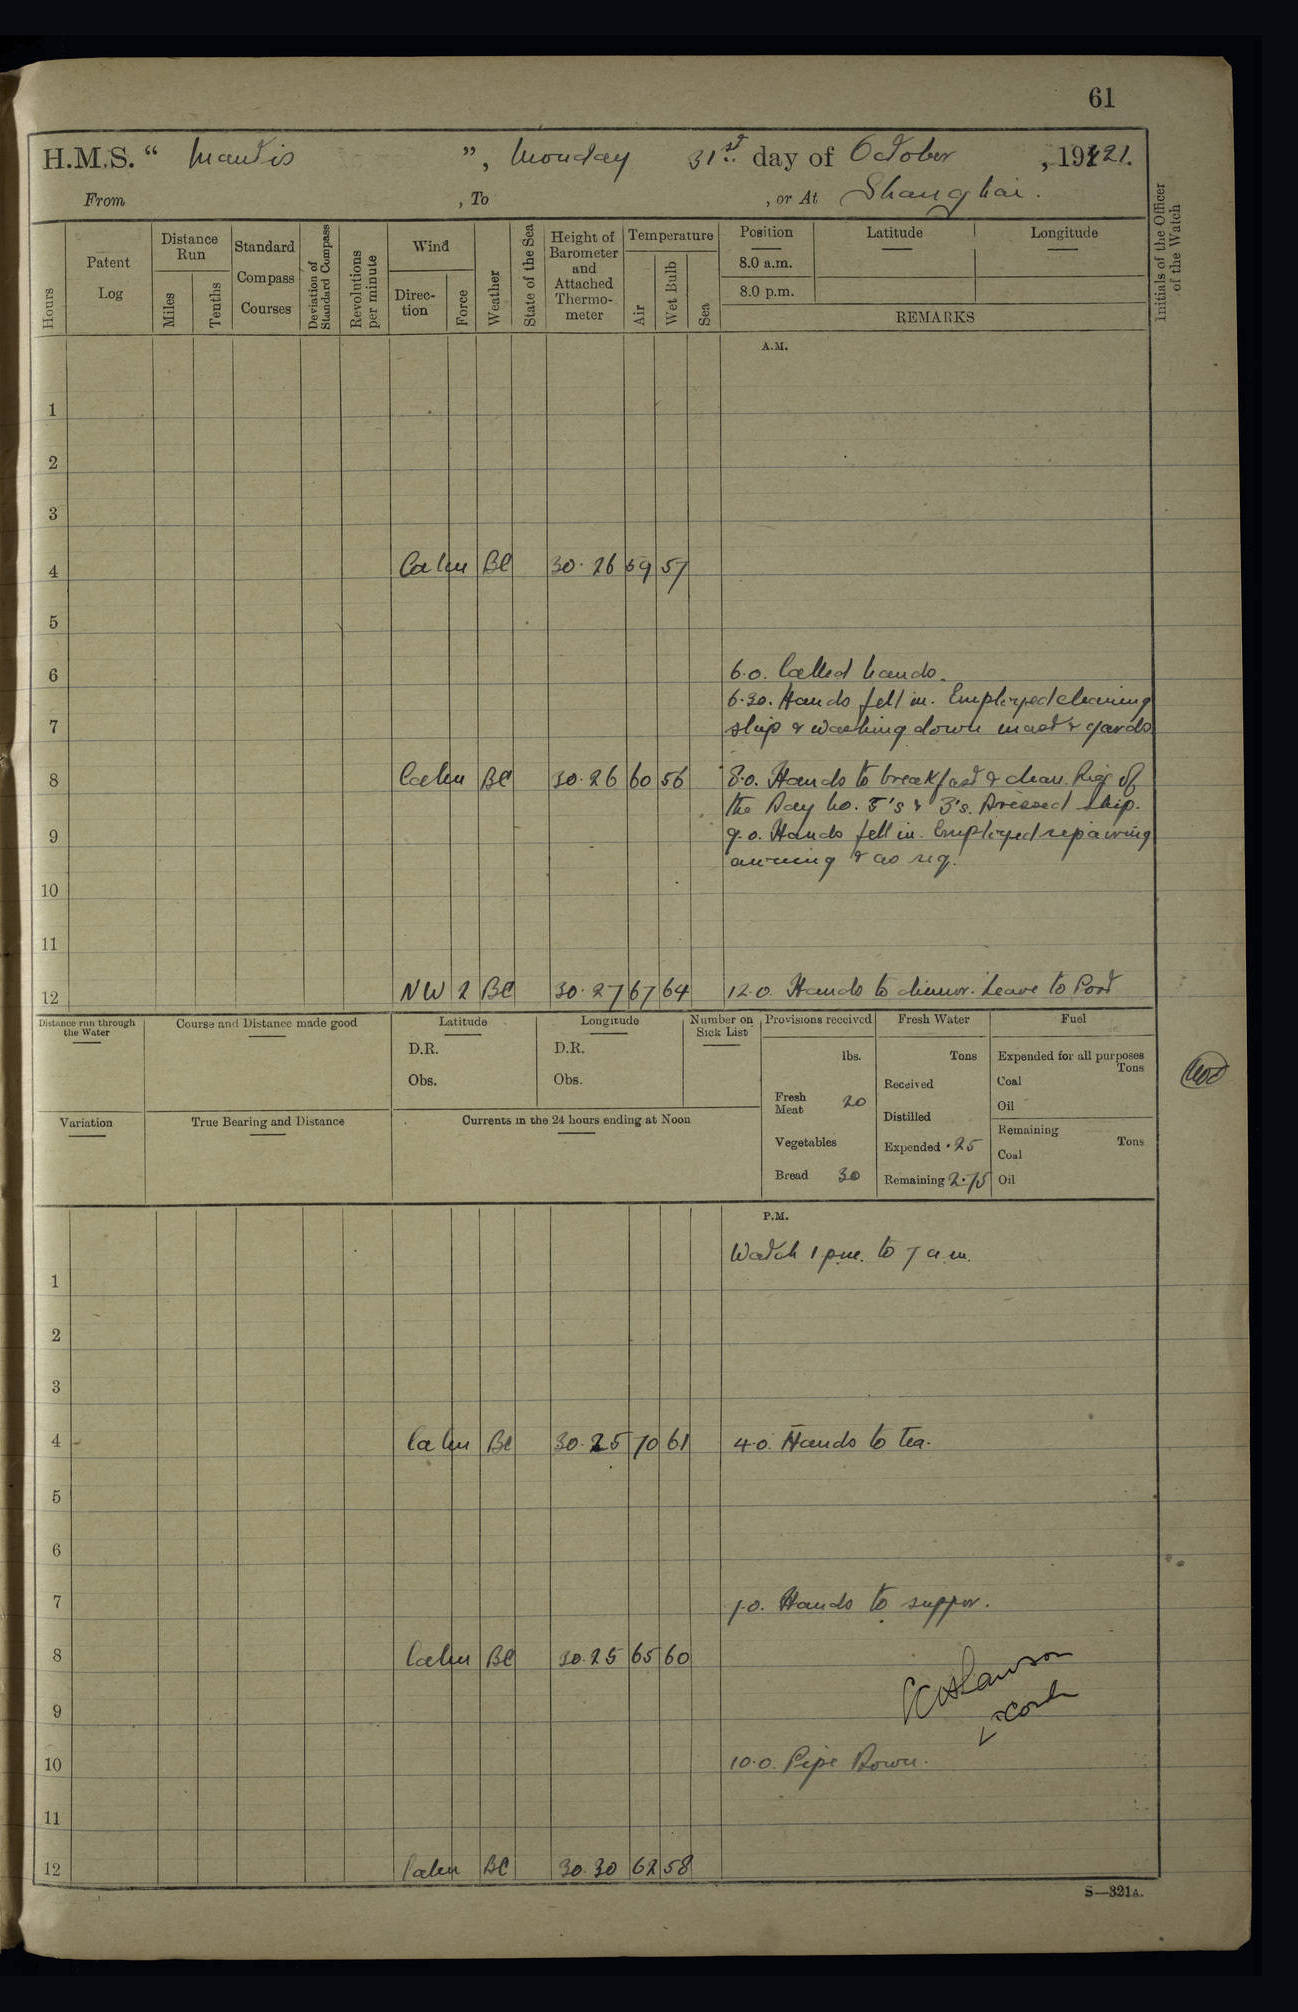 61
H.M.S. “ Mantis ”, Monday 31st day of October , 1921.
From , To , or At Shanghai.
Hours
Patent Log
Distance Run
Miles
Tenths
Standard Compass Courses
Deviation of Standard Compass
Revolutions per minute
Wind
Direction
Force
Weather
State of the Sea
Height of Barometer and Attached Thermometer
Temperature
Air
Wet Bulb
Sea
Position
8.0 a.m.
8.0 p.m.
Latitude
Longitude
REMARKS
Initials of the Officer of the Watch
A.M.
1
2
3
4 Calm BC 30.26 59 57
5
6 6.0. Called hands.
6.30. Hands fell in. Employed cleaning
7 ship & washing down mast & yards
8 Calm BC 30.26 60 56 8.0. Hands to breakfast & clean. Rig of
the Day No. 5's & 3's. Dressed ship.
9 9.0. Hands fell in. Employed repairing
awning & as req.
10
11
12 NW 2 BC 30.27 67 64 12.0. Hands to dinner. Leave to Port
Distance run through the Water
Course and Distance made good
Latitude
D.R.
Obs.
Longitude
D.R.
Obs.
Number on Sick List
Provisions received
lbs.
Fresh Meat 20
Vegetables
Bread 30
Fresh Water
Tons
Received
Distilled
Expended .25
Remaining 2.75
Fuel
Expended for all purposes
Tons
Coal
Oil
Remaining
Tons
Coal
Oil
Variation
True Bearing and Distance
Currents in the 24 hours ending at Noon
P.M.
Watch 1 pm. to 7 a.m.
1
2
3
4 Calm BC 30.25 70 61 4.0. Hands to tea.
5
6
7 7.0. Hands to supper.
8 Calm BC 30.25 65 60
9
10 10.0. Pipe Down.
11
12 Calm BC 30.30 62 58
S—321A.